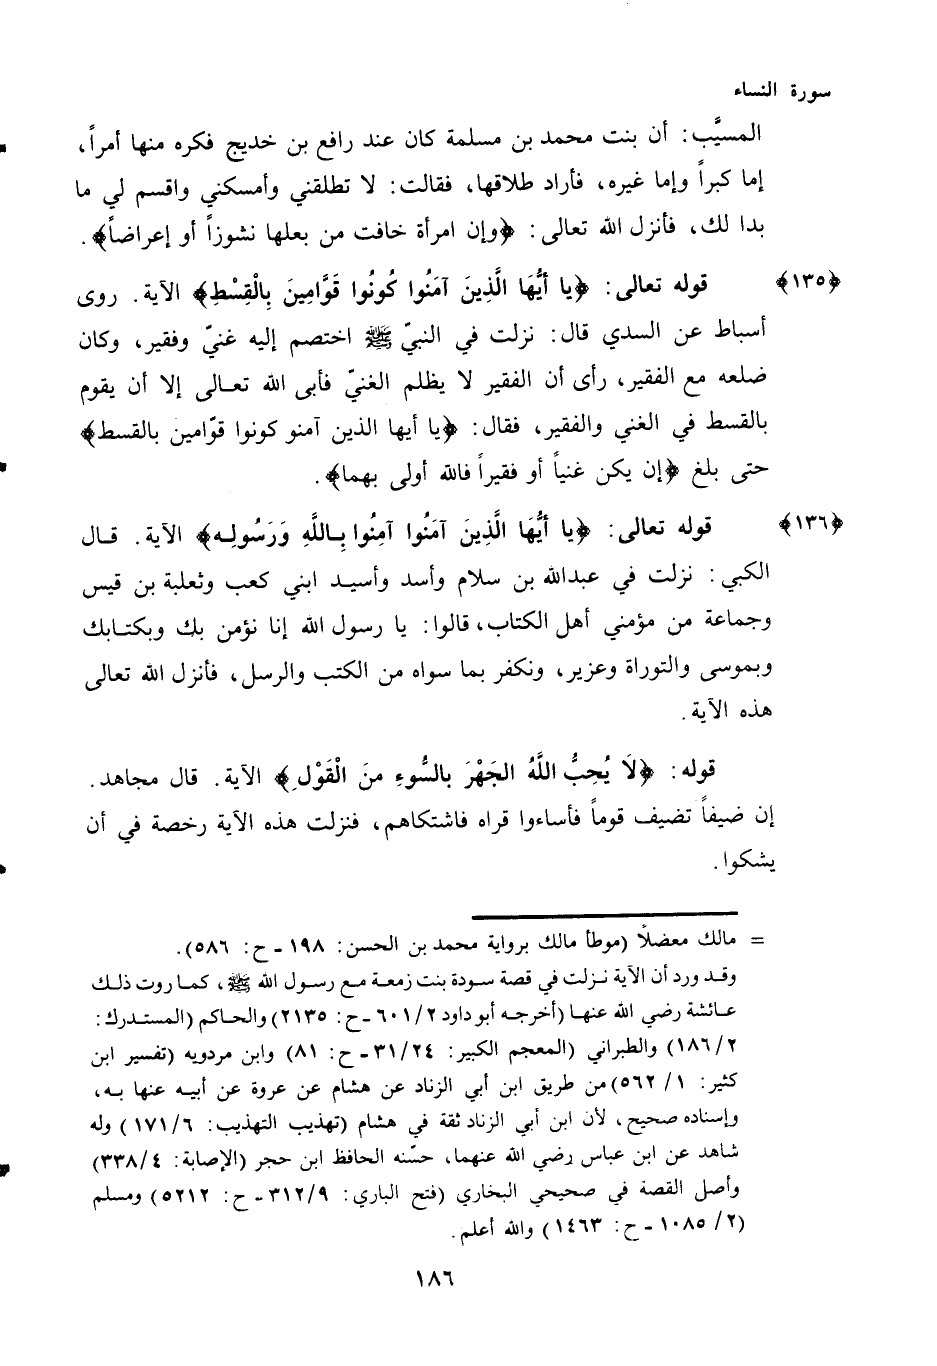 سورة النساء
المسيَّب: أن بنت محمد بن مسلمة كان عند رافع بن خديج فكره منها أمراً،
إما كبراً وإما غيره، فأراد طلاقها، فقالت: لا تطلقني وأمسكني واقسم لي ما
بدا لك، فأنزل الله تعالى: ﴿وإن امرأة خافت من بعلها نشوزاً أو إعراضاً﴾.
﴿١٣٥﴾ قوله تعالى: ﴿يا أَيُّهَا الَّذِينَ آمَنُوا كُونُوا قَوَّامِينَ بِالْقِسْطِ﴾ الآية. روى
أسباط عن السدي قال: نزلت في النبيّ ﷺ اختصم إليه غنيّ وفقير، وكان
ضلعه مع الفقير، رأى أن الفقير لا يظلم الغنيّ فأبى الله تعالى إلا أن يقوم
بالقسط في الغني والفقير، فقال: ﴿يا أيها الذين آمنو كونوا قوّامين بالقسط﴾
حتى بلغ ﴿إن يكن غنياً أو فقيراً فالله أولى بهما﴾.
﴿١٣٦﴾ قوله تعالى: ﴿يا أَيُّهَا الَّذِينَ آمَنُوا آمِنُوا بِاللَّهِ وَرَسُولِه﴾ الآية. قال
الكبي: نزلت في عبدالله بن سلام وأسد وأسيد ابني كعب وثعلبة بن قيس
وجماعة من مؤمني أهل الكتاب، قالوا: يا رسول الله إنا نؤمن بك وبكتابك
وبموسى والتوراة وعزير، ونكفر بما سواه من الكتب والرسل، فأنزل الله تعالى
هذه الآية.
قوله: ﴿لَا يُحِبُّ اللَّهُ الجَهْرَ بالسُّوءِ منَ الْقَوْلِ﴾ الآية. قال مجاهد.
إن ضيفاً تضيف قوماً فأساءوا قراه فاشتكاهم، فنزلت هذه الآية رخصة في أن
يشكوا.
= مالك معضلًا (موطأ مالك برواية محمد بن الحسن: ١٩٨ - ح: ٥٨٦).
وقد ورد أن الآية نزلت في قصة سودة بنت زمعة مع رسول الله ﷺ، كما روت ذلك
عائشة رضي الله عنها (أخرجه أبو داود ٦٠١/٢ - ح: ٢١٣٥) والحاكم (المستدرك:
١٨٦/٢) والطبراني (المعجم الكبير: ٣١/٢٤ - ح: ٨١) وابن مردويه (تفسير ابن
كثير: ٥٦٢/١) من طريق ابن أبي الزناد عن هشام عن عروة عن أبيه عنها به،
وإسناده صحيح، لأن ابن أبي الزناد ثقة في هشام (تهذيب التهذيب: ١٧١/٦) وله
شاهد عن ابن عباس رضي الله عنهما، حسّنه الحافظ ابن حجر (الإصابة: ٣٣٨/٤)
وأصل القصة في صحيحي البخاري (فتح الباري: ٣١٢/٩ - ح: ٥٢١٢) ومسلم
(١٠٨٥/٢ - ح: ١٤٦٣) والله أعلم.
١٨٦